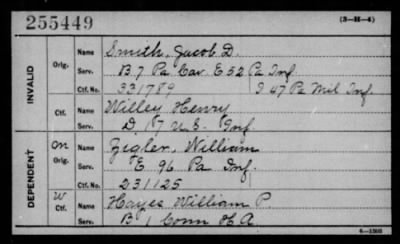 255449 (3-H-4)
INVALID
Orig. Name Smith, Jacob D.
Serv. B. 7 Pa Cav. E 52 Pa Inf.
Ctf. No. 331789 I 47 Pa Mil Inf
Ctf. Name Willey Henry
Serv. D 17 U.S. Inf.
DEPENDENT
on Orig. Name Zigler, William
Serv. E. 96 Pa Inf.
Ctf. No. 231125
W Ctf. Name Hayes William P
Serv. B 1 Conn H A